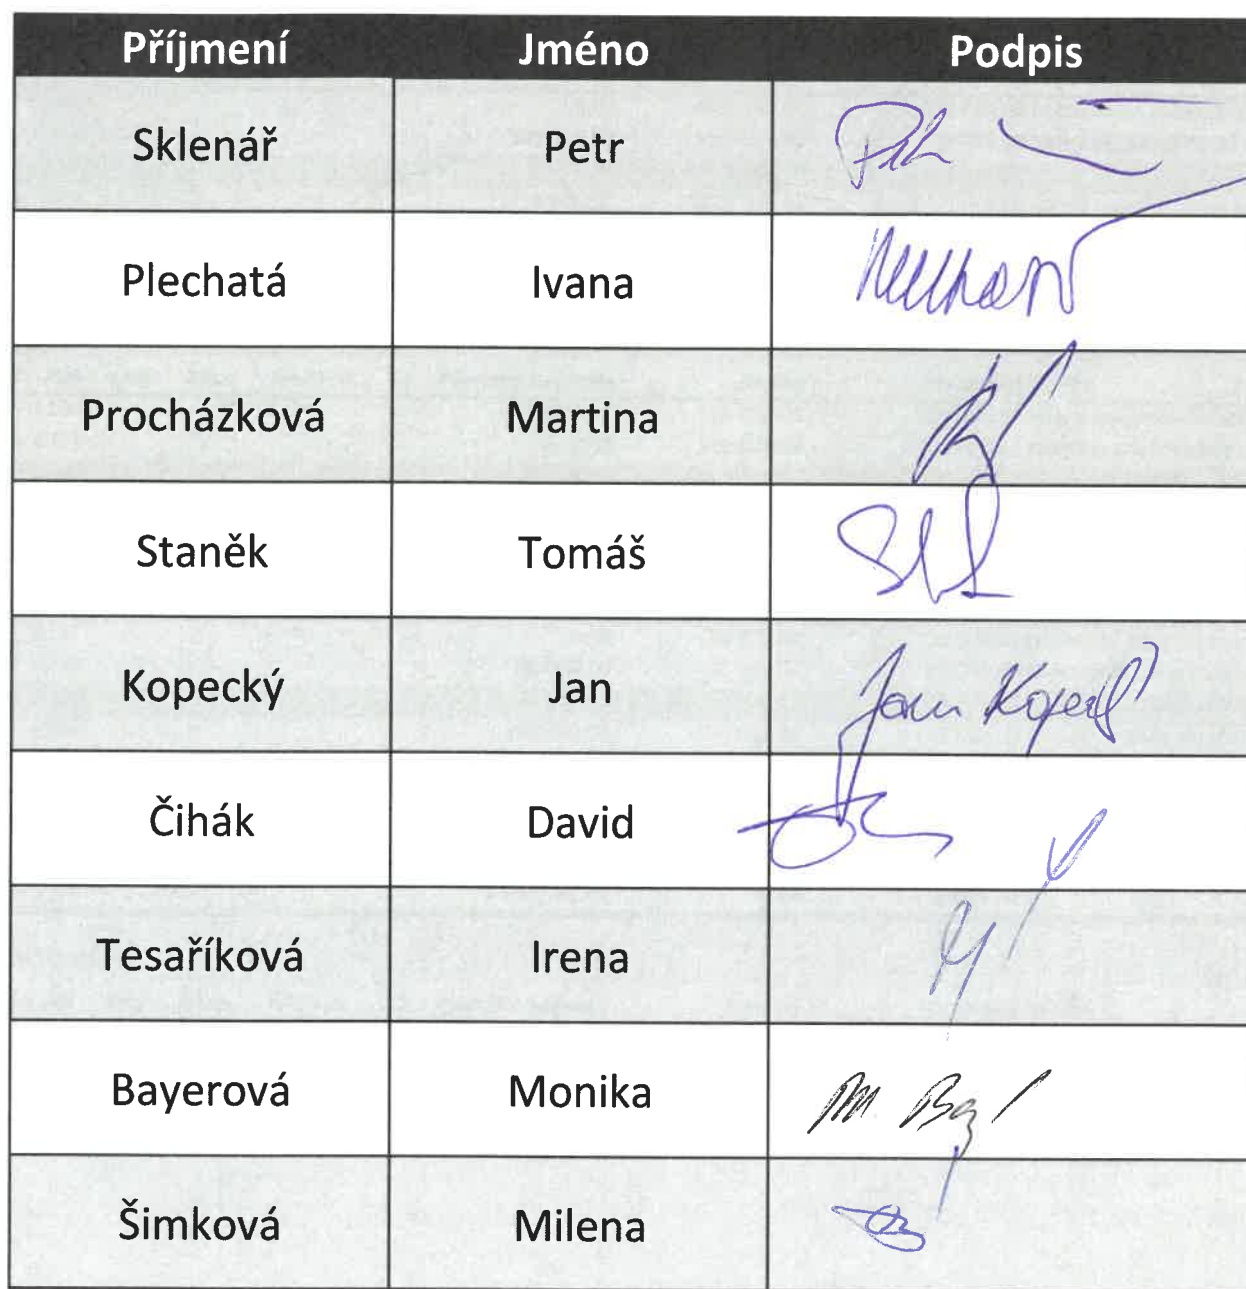 Příjmení Jméno Podpis
Sklenář Petr
Plechatá Ivana
Procházková Martina
Staněk Tomáš
Kopecký Jan Jan
Čihák David
Tesaříková Irena
Bayerová Monika M.
Šimková Milena